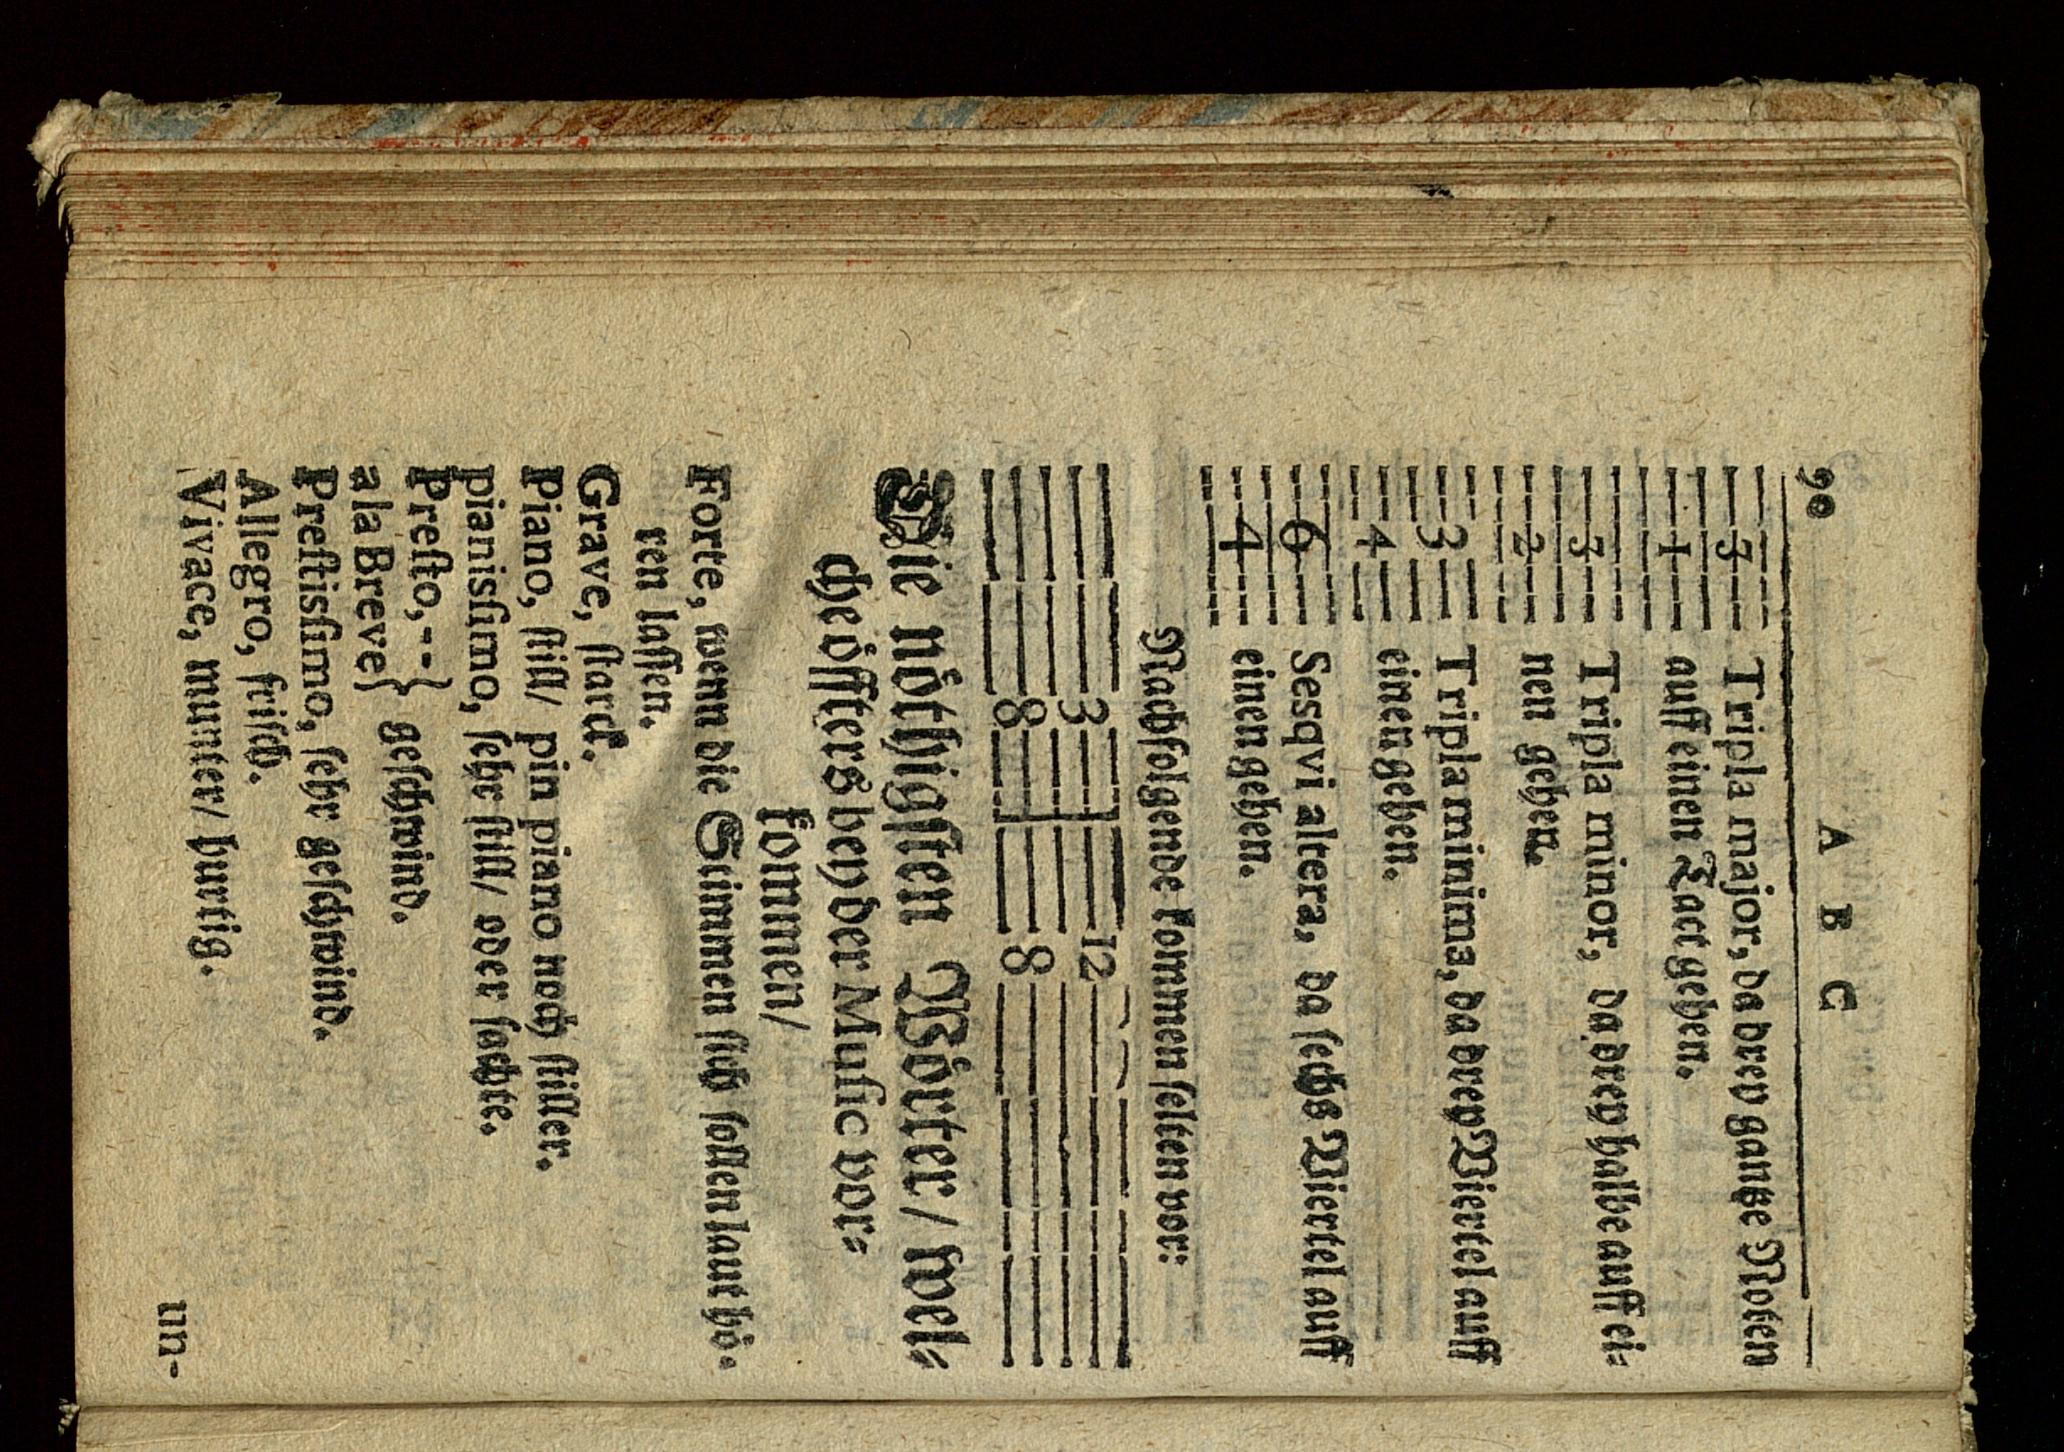 90 A B C
3 Tripla major, da drey gantze Noten
1 auff einen Tact gehen.
3 Tripla minor, da drey halbe auff ei⸗
2 nen gehen.
3 Tripla minima, da drey Viertel auff
4 einen gehen.
6 Sesqvi altera, da sechs Viertel auff
4 einen gehen.
Nachfolgende kommen selten vor:
3 12
8 8
Die nöthigsten Wörter / wel⸗
che öffters bey der Music vor⸗
kommen /
Forte, wenn die Stimmen sich sollen laut hö⸗
ren lassen.
Grave, starck.
Piano, still / pin piano noch stiller.
Pianissimo, sehr still / oder sachte.
Presto, - - }
a la Breve } geschwind.
Prestissimo, sehr geschwind.
Allegro, frisch.
Vivace, munter / hurtig.
un-